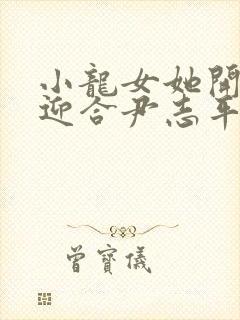 小龍女她開
迎合尹志平
曾寶儀